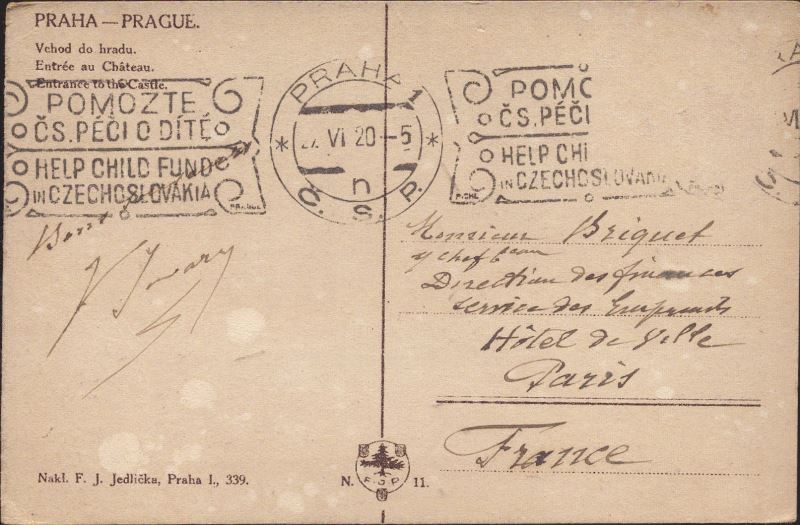 PRAHA — PRAGUE.
Vchod do hradu.
Entrée au Château.
Entrance to the Castle.
POMOZTE
ČS. PÉČI O DÍTĚ
HELP CHILD FUND
IN CZECHOSLOVAKIA
PRAGUE
PRAHA 1
VI 20-5
n
Č. S. P.
POMO
ČS. PÉČI
HELP CHI
IN CZECHOSLOVAKIA
Monsieur Briquet
Direction des finances
Service des Emprunts
Hôtel de Ville
Paris
France
Nakl. F. J. Jedlička, Praha I., 339.
N. 11.
F J P